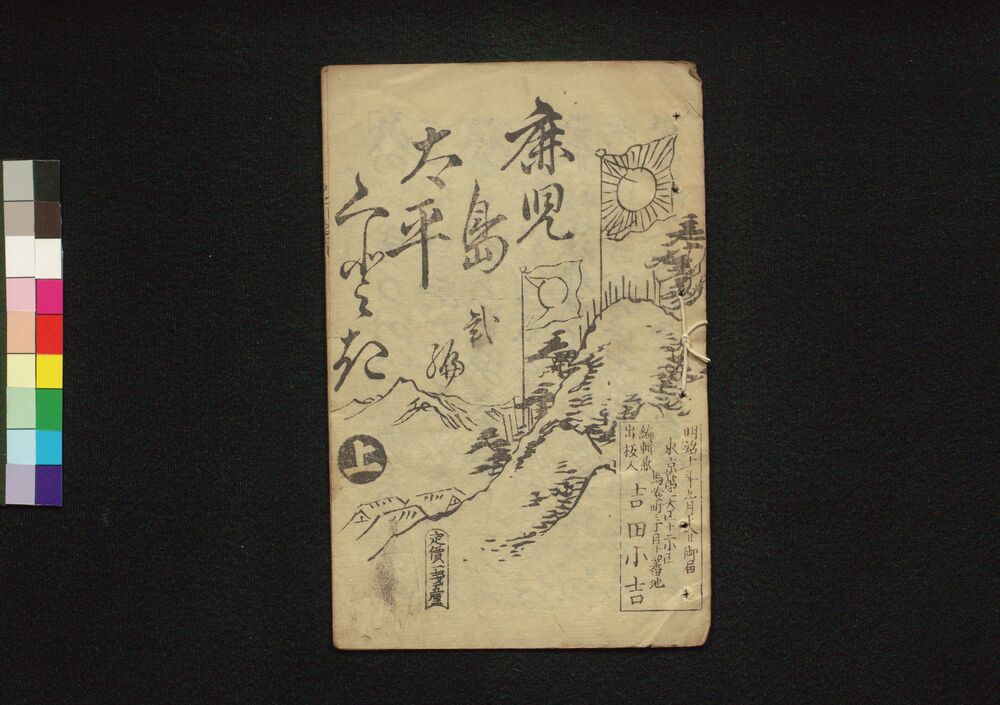 鹿児
島
太平
記
弐
編
上
定價一戔五厘
明治十年九月十八日御届
東京第一大区十二小区
馬喰町三丁目十四番地
編輯兼
出板人
吉田小吉